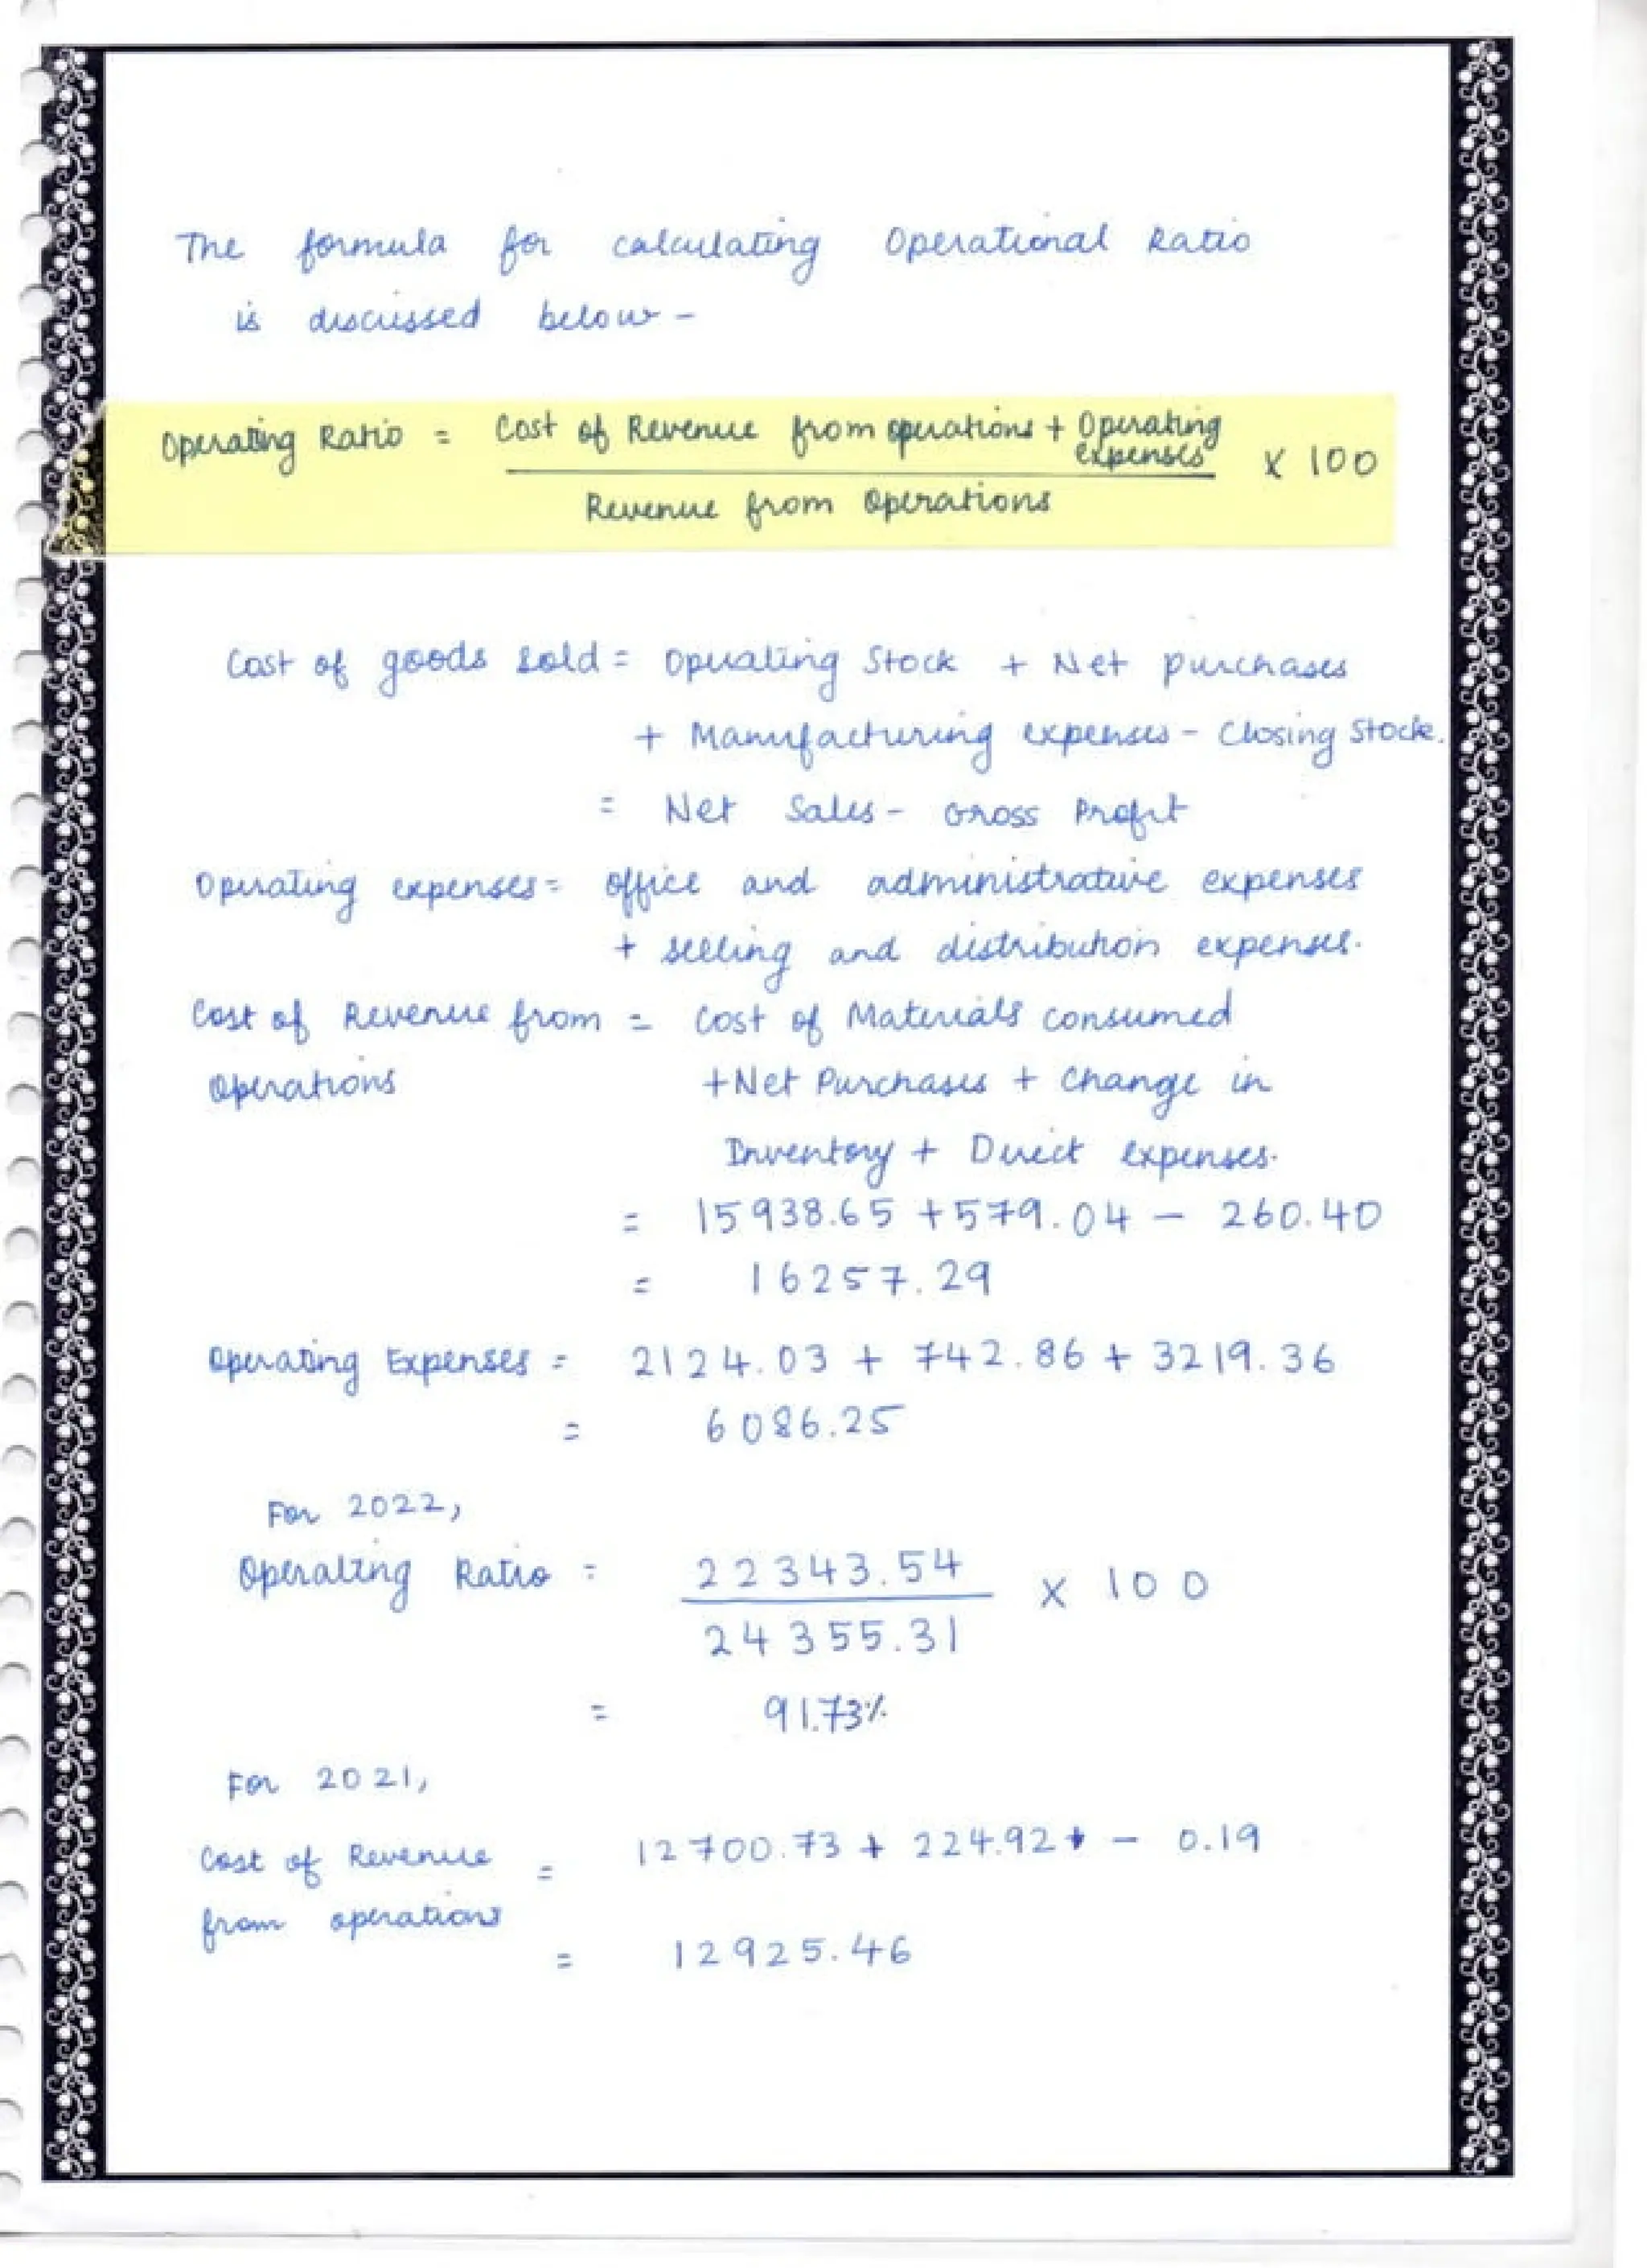 The formula for calculating Operational Ratio
is discussed below -
Operating Ratio = Cost of Revenue from operations + Operating expenses
Revenue from Operations
X 100
Cost of goods sold = Operating Stock + Net purchases
+ Manufacturing expenses - Closing Stock.
= Net Sales - Gross Profit
Operating expenses = office and administrative expenses
+ selling and distribution expenses.
Cost of Revenue from = Cost of Materials consumed
Operations +Net Purchases + Change in
Inventory + Direct expenses.
= 15938.65 + 579.04 - 260.40
= 16257.29
Operating Expenses = 2124.03 + 742.86 + 3219.36
= 6086.25
For 2022,
Operating Ratio = 22343.54
24355.31
X 100
= 91.73%
For 2021,
Cost of Revenue = 12700.73 + 224.92 + - 0.19
from operations
= 12925.46